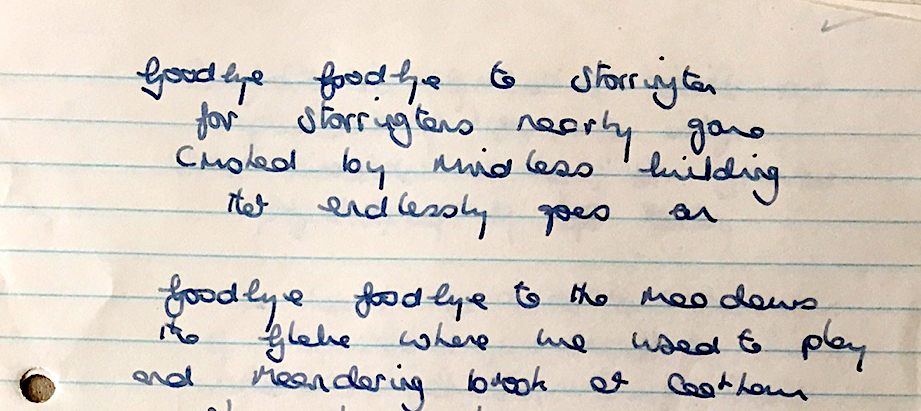 Goodbye goodbye to Storrington
for Storringtons nearly gone
Crushed by mindless building
that endlessly goes on
Goodbye goodbye to the meadows
the Glebe where we used to play
and meandering brook at Cootham